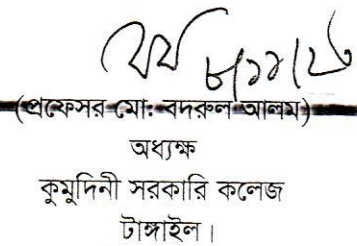 ৮/১১/২৩
(প্রফেসর মো: বদরুল আলম)
অধ্যক্ষ
কুমুদিনী সরকারি কলেজ
টাঙ্গাইল।